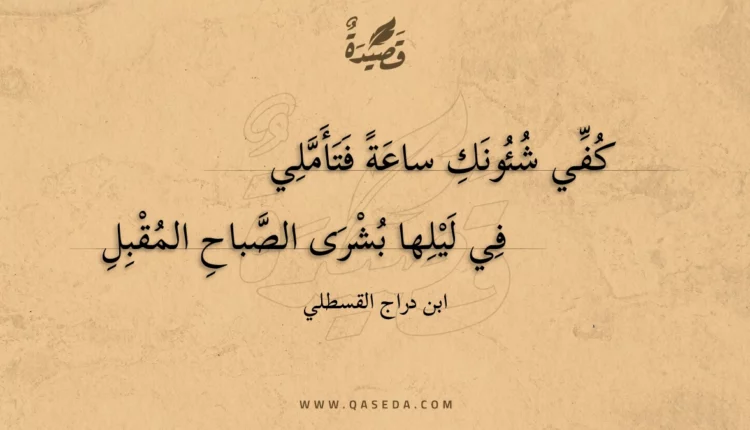 قَصِيْدَةٌ
كُفِّي شُئُونَكِ ساعَةً فَتَأَمَّلِي
فِي لَيْلِها بُشْرَى الصَّباحِ المُقْبِلِ
ابن دراج القسطلي
WWW.QASEDA.COM